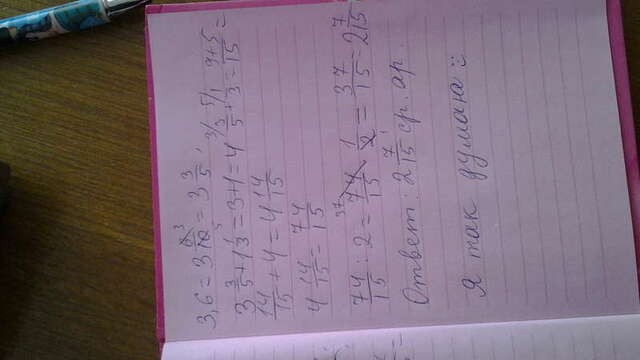 3,6 = 3 6/10 = 3 3/5;
3 3/5 + 1 1/3 = 3 + 1 = 4 3/5 + 1/3 = 9+5/15 =
14/15 + 4 = 4 14/15
4 14/15 = 74/15
74/15 : 2 = 74/15 · 1/2 = 37/15 = 2 7/15
Ответ: 2 7/15 ср. ар.
Я так думана